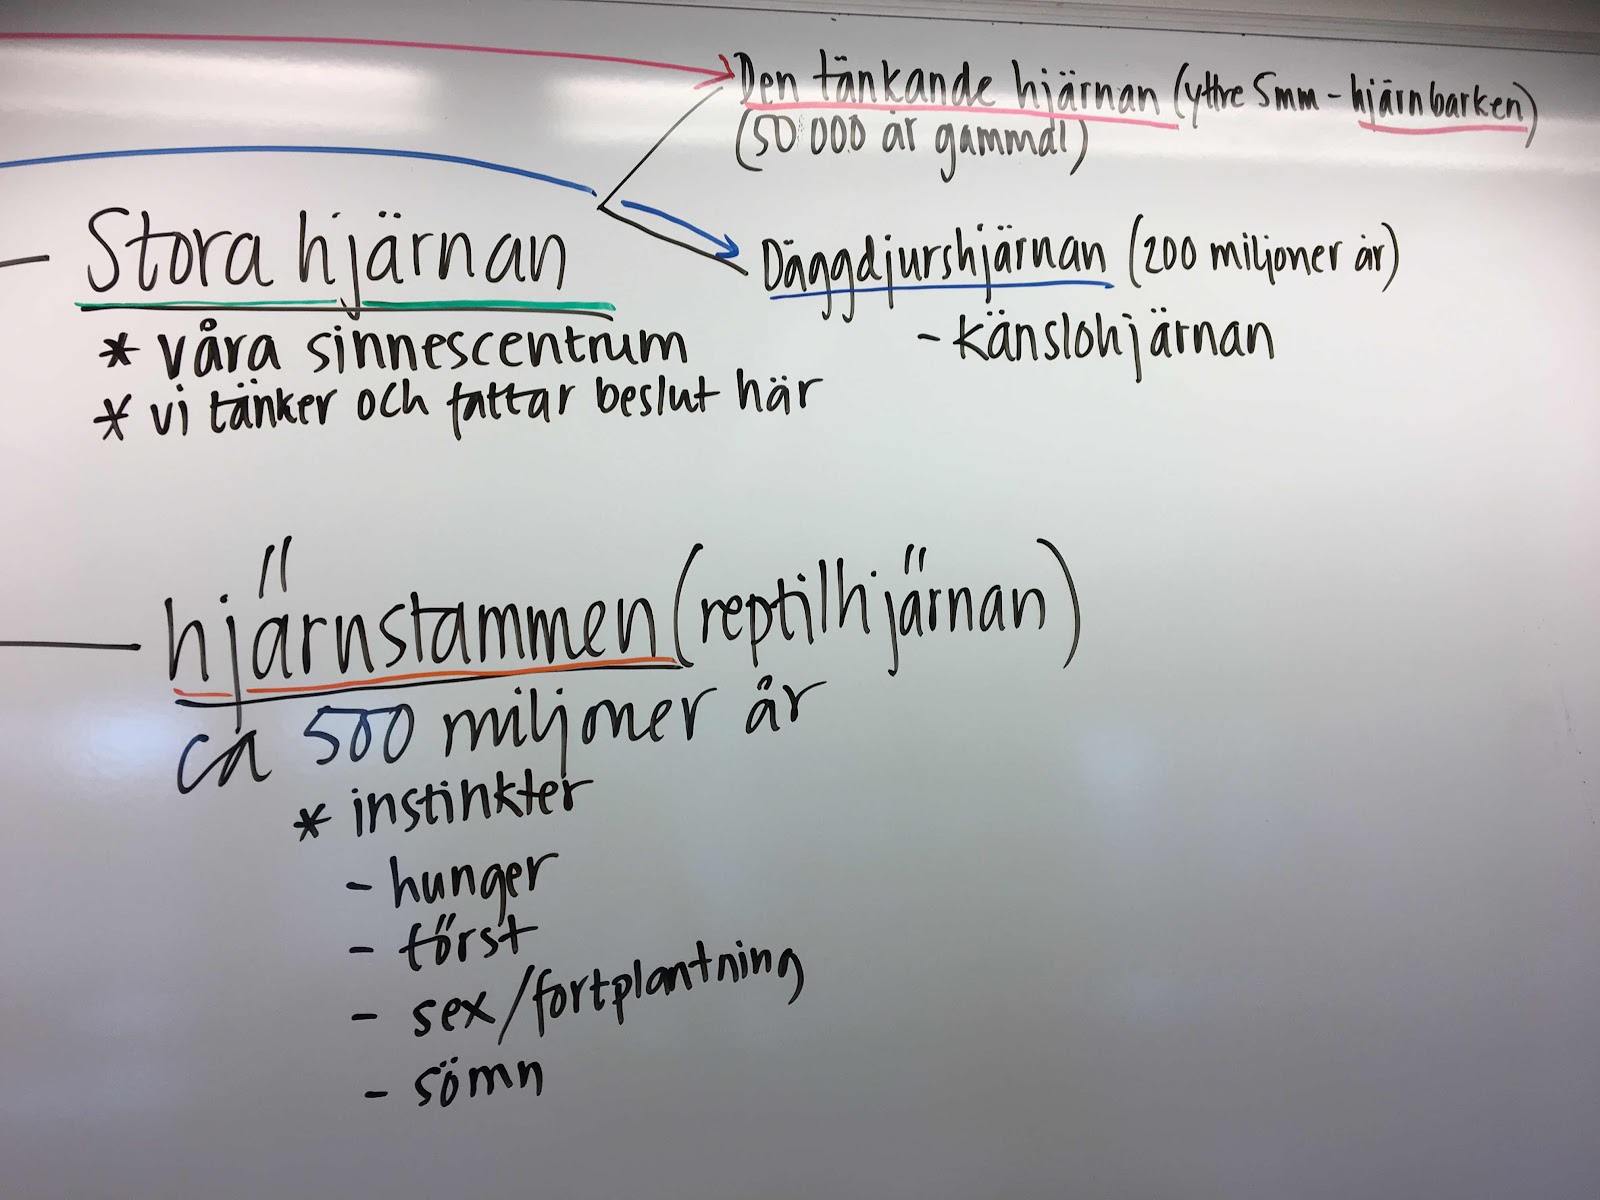 Den tänkande hjärnan (yttre 5mm - hjärnbarken)
(50 000 år gammal)
Stora hjärnan
* våra sinnescentrum
* vi tänker och fattar beslut här
Däggdjurshjärnan (200 miljoner år)
- känslohjärnan
hjärnstammen (reptilhjärnan)
ca 500 miljoner år
* instinkter
- hunger
- törst
- sex/fortplantning
- sömn